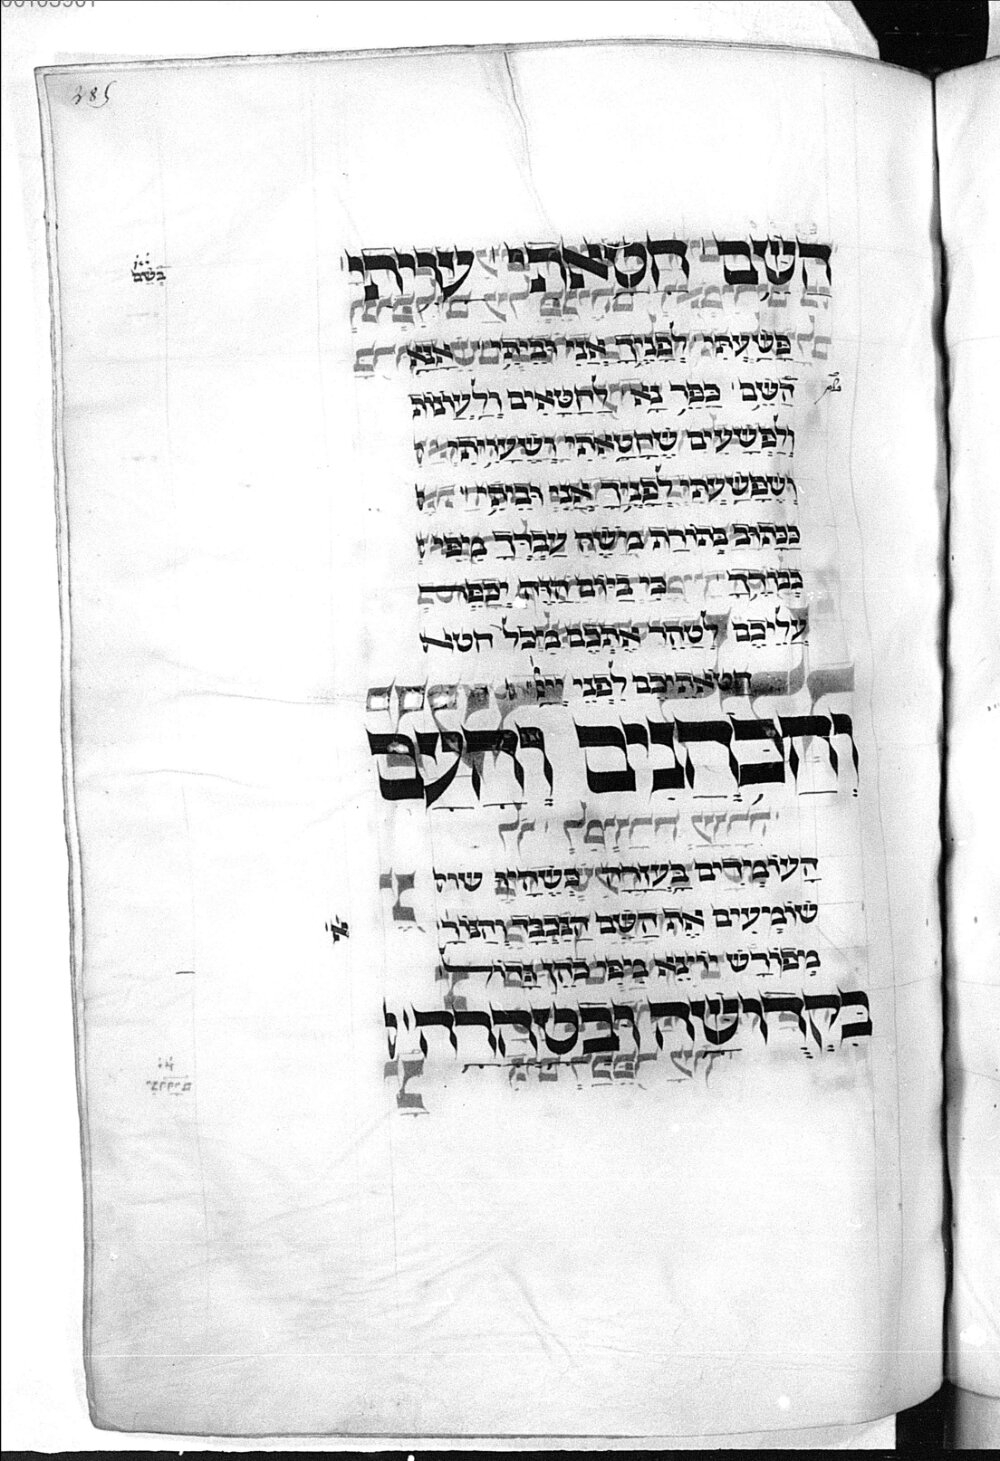 285
הַשֵּׁם חָטָאתִי עָוִיתִי
פָּשַׁעְתִּי לְפָנֶיךָ אֲנִי וּבֵיתִי אָנָּא
הַשֵּׁם כַּפֵּר נָא לַחֲטָאִים וְלַעֲוֹנוֹת
וְלַפְּשָׁעִים שֶׁחָטָאתִי וְשֶׁעָוִיתִי
וְשֶׁפָּשַׁעְתִּי לְפָנֶיךָ אֲנִי וּבֵיתִי
כַּכָּתוּב בְּתוֹרַת מֹשֶׁה עַבְדֶּךָ מִפִּי
כְבוֹדֶךָ כִּי בַיּוֹם הַזֶּה יְכַפֵּר
עֲלֵיכֶם לְטַהֵר אֶתְכֶם מִכֹּל חטא
חַטֹּאתֵיכֶם לִפְנֵי יְיָ
וְהַכֹּהֲנִים וְהָעָם
הָעוֹמְדִים בָּעֲזָרָה כְּשֶׁהָיוּ שו
שׁוֹמְעִים אֶת הַשֵּׁם הַנִּכְבָּד וְהַנּוֹרָ
מְפוֹרָשׁ יוֹצֵא מִפִּי כֹהֵן גָּדוֹל
בִּקְדוּשָּׁה וּבְטָהֳרָה